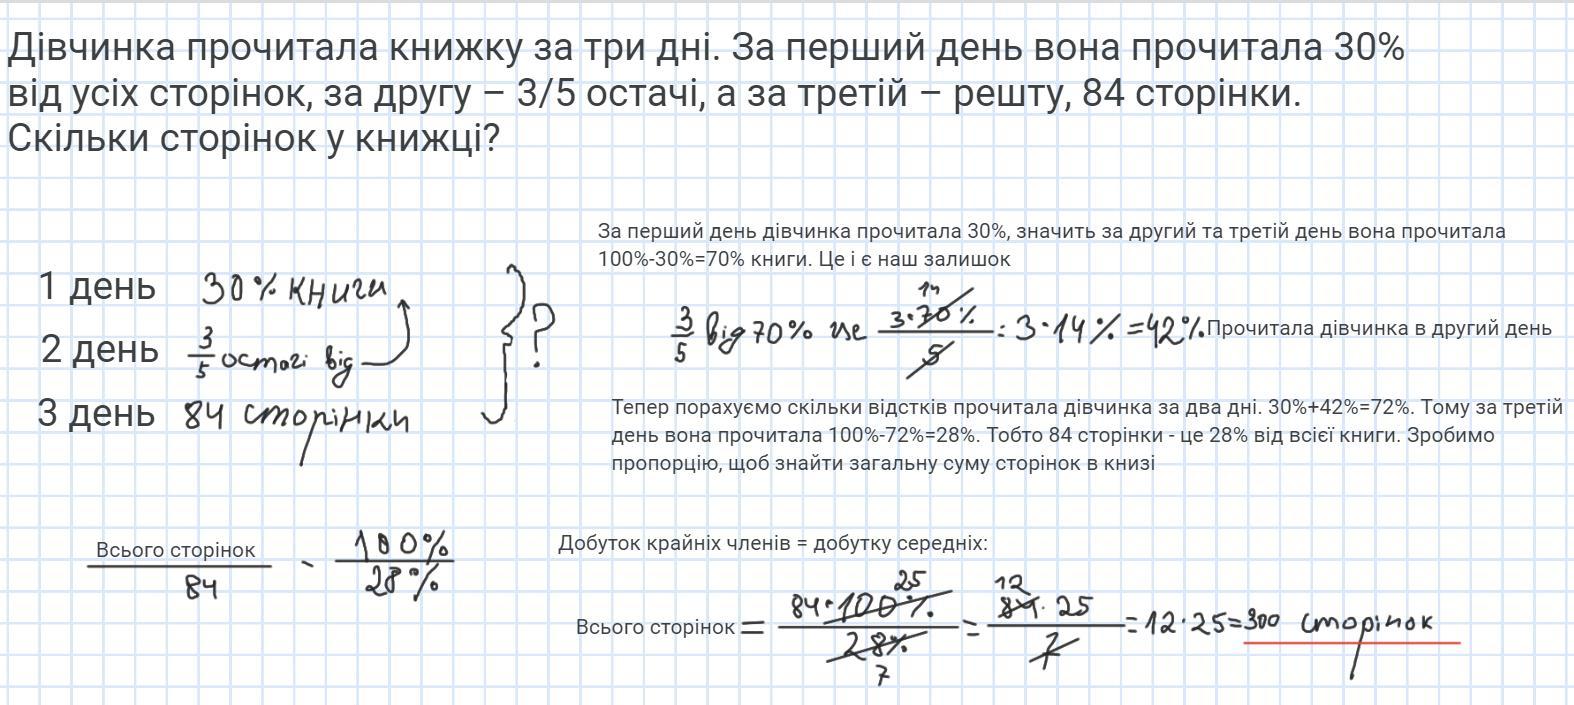 Дівчинка прочитала книжку за три дні. За перший день вона прочитала 30%
від усіх сторінок, за другу – 3/5 остачі, а за третій – решту, 84 сторінки.
Скільки сторінок у книжці?
За перший день дівчинка прочитала 30%, значить за другий та третій день вона прочитала
100%-30%=70% книги. Це і є наш залишок
1 день 30% книги
2 день 3/5 остачі від
3 день 84 сторінки
?
3/5 від 70% це 3·70%/5 = 3·14% =42% Прочитала дівчинка в другий день
14
Тепер порахуємо скільки відстків прочитала дівчинка за два дні. 30%+42%=72%. Тому за третій
день вона прочитала 100%-72%=28%. Тобто 84 сторінки - це 28% від всієї книги. Зробимо
пропорцію, щоб знайти загальну суму сторінок в книзі
Всього сторінок/84 - 100%/28%
Добуток крайніх членів = добутку середніх:
25 12
Всього сторінок = 84·100%/28% = 84·25/7 = 12·25=300 сторінок
7